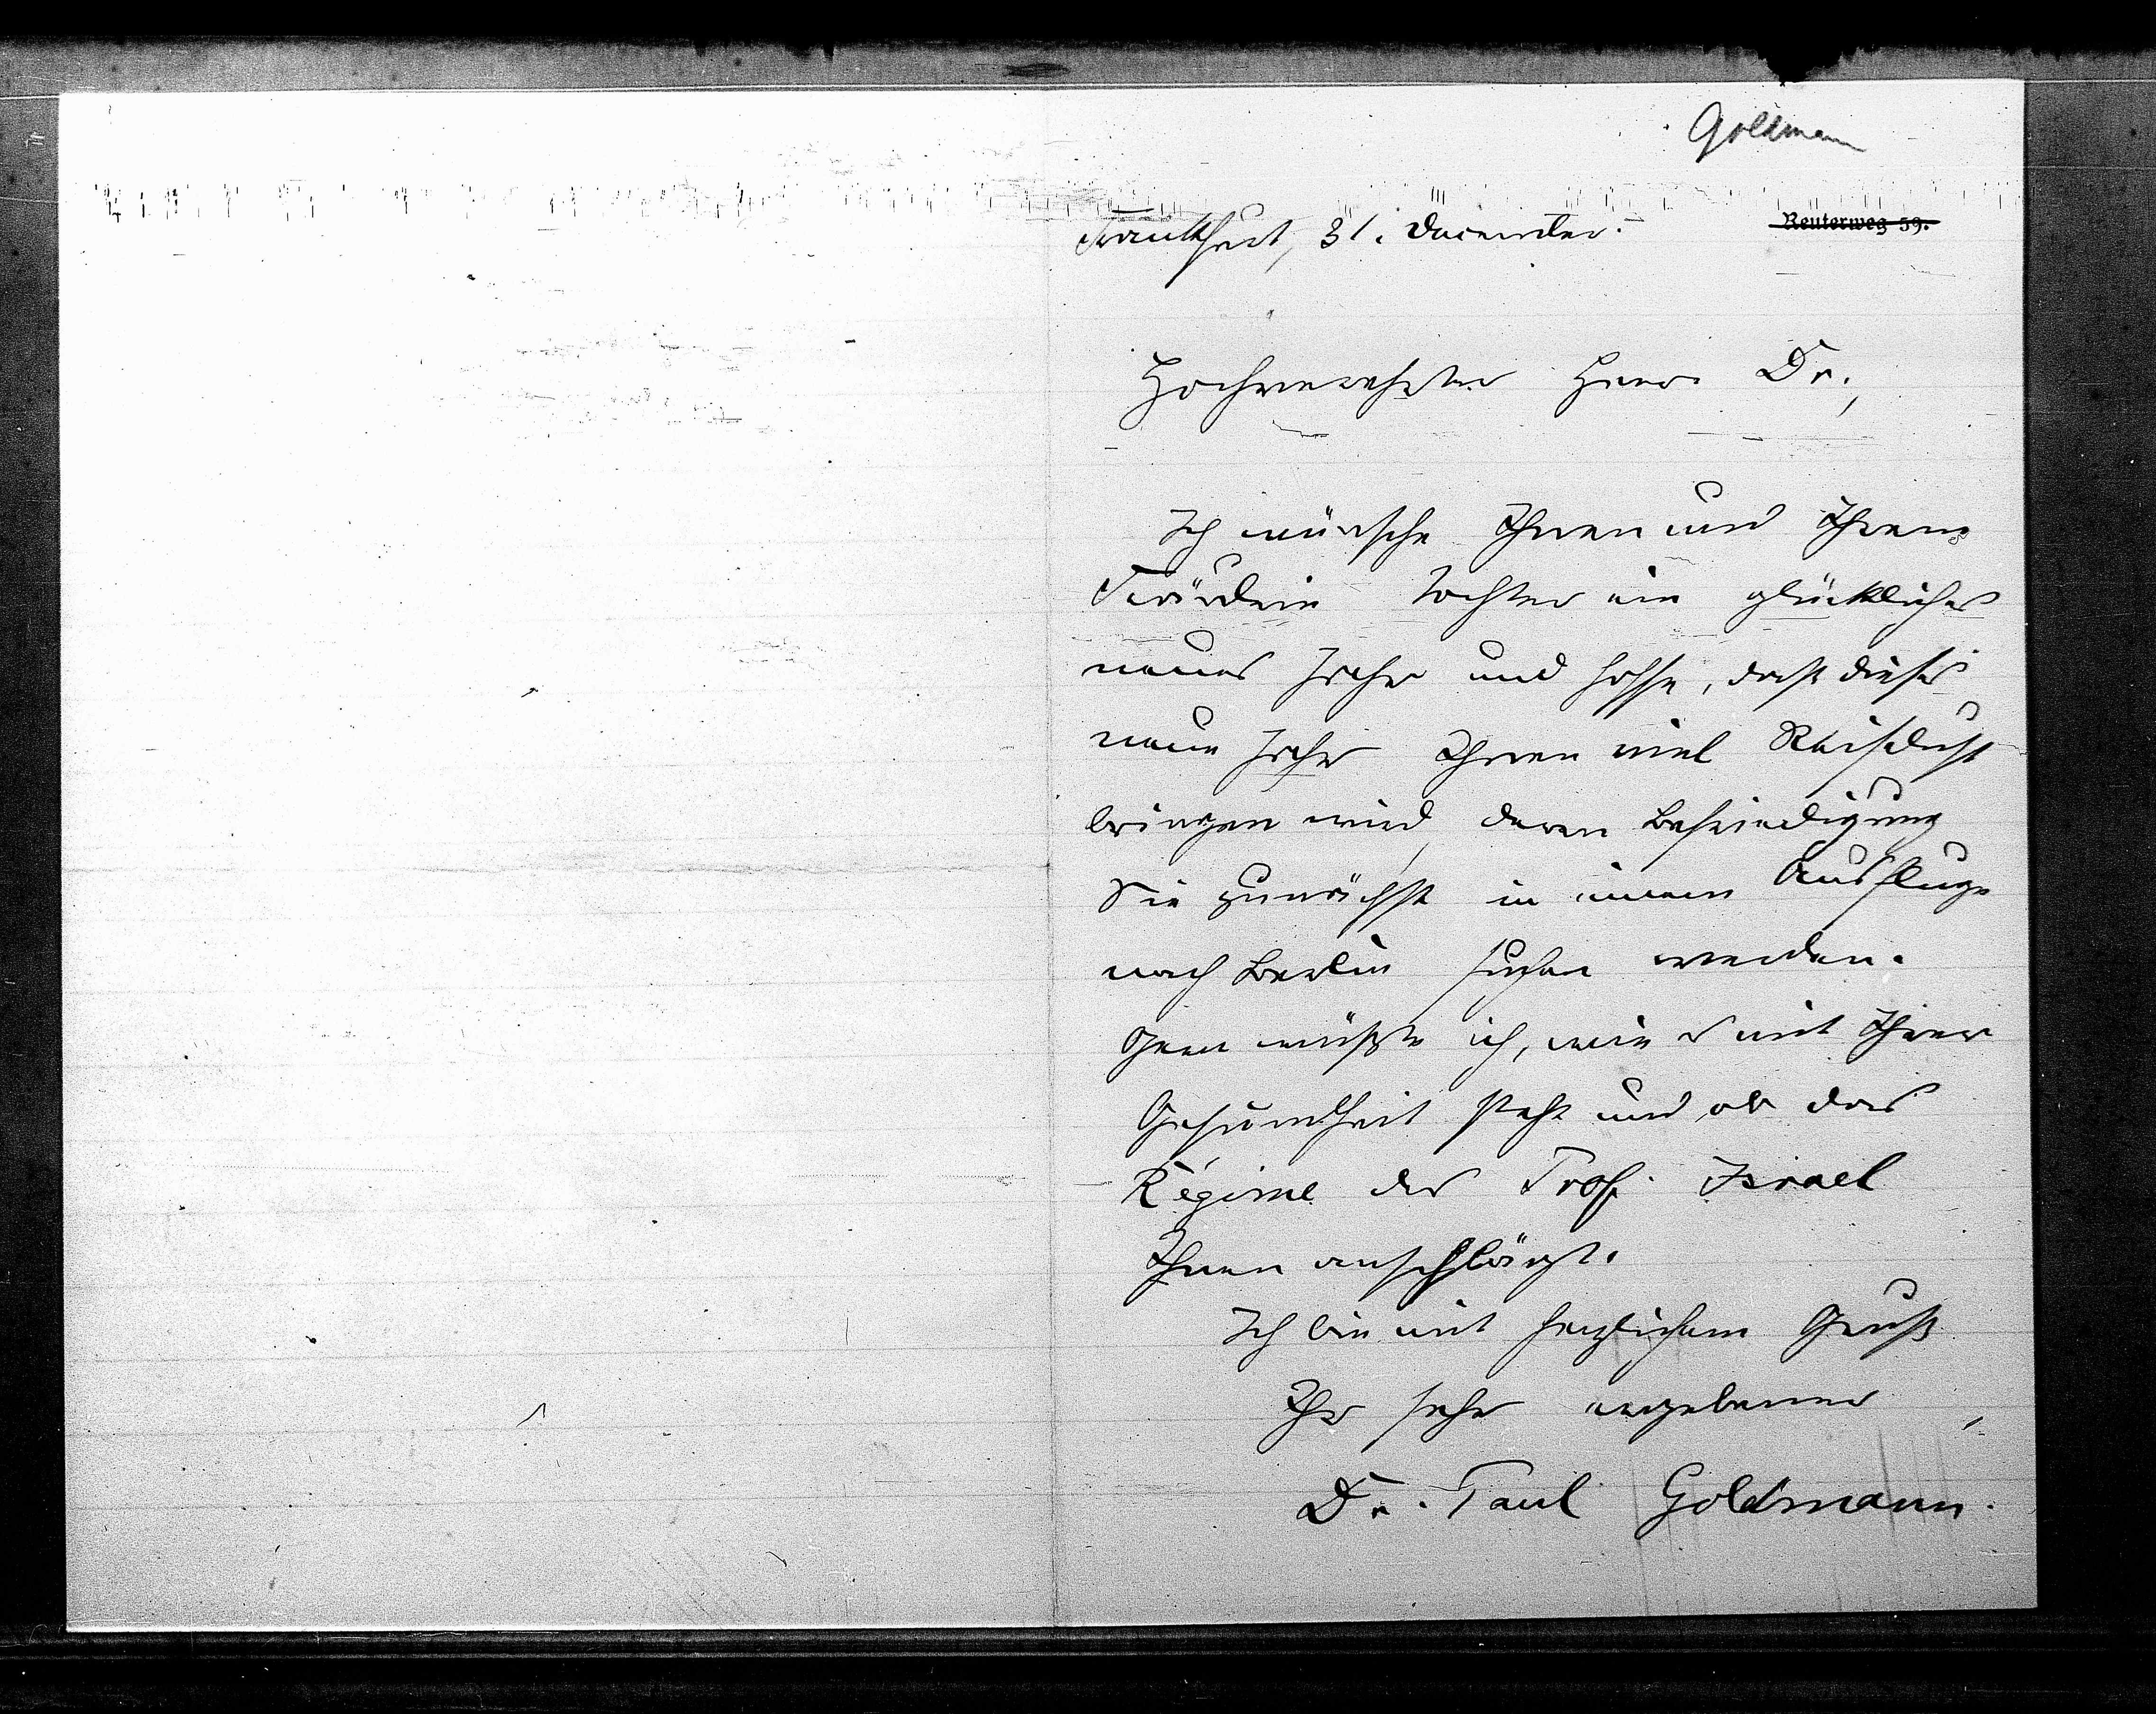 Goldmann
Frankfurt, 31. December.
Reuterweg 59.
Hochverehrter Herr Dr.,
Ich wünsche Ihnen und Ihrem
Fräulein Tochter ein glückliches
neues Jahr und hoffe, daß dieses
neue Jahr Ihnen viel Reiselust
bringen wird, deren Befriedigung
Sie zunächst in einem Ausfluge
nach Berlin suchen werden.
Gern wüßte ich, wie es mit Ihrer
Gesundheit steht und ob das
Régime des Prof. Israel
Ihnen anschlägt.
Ich bin mit herzlichem Gruß
Ihr sehr ergebener
Dr. Paul Goldmann.